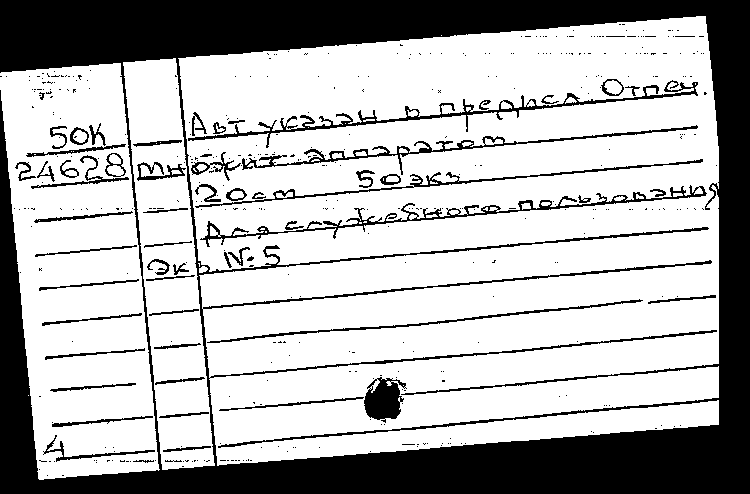 Авт указан в предисл. Отпеч.
50К
24628 множит аппаратом
20см 50экз
Для служебного пользования
Экз. № 5
4